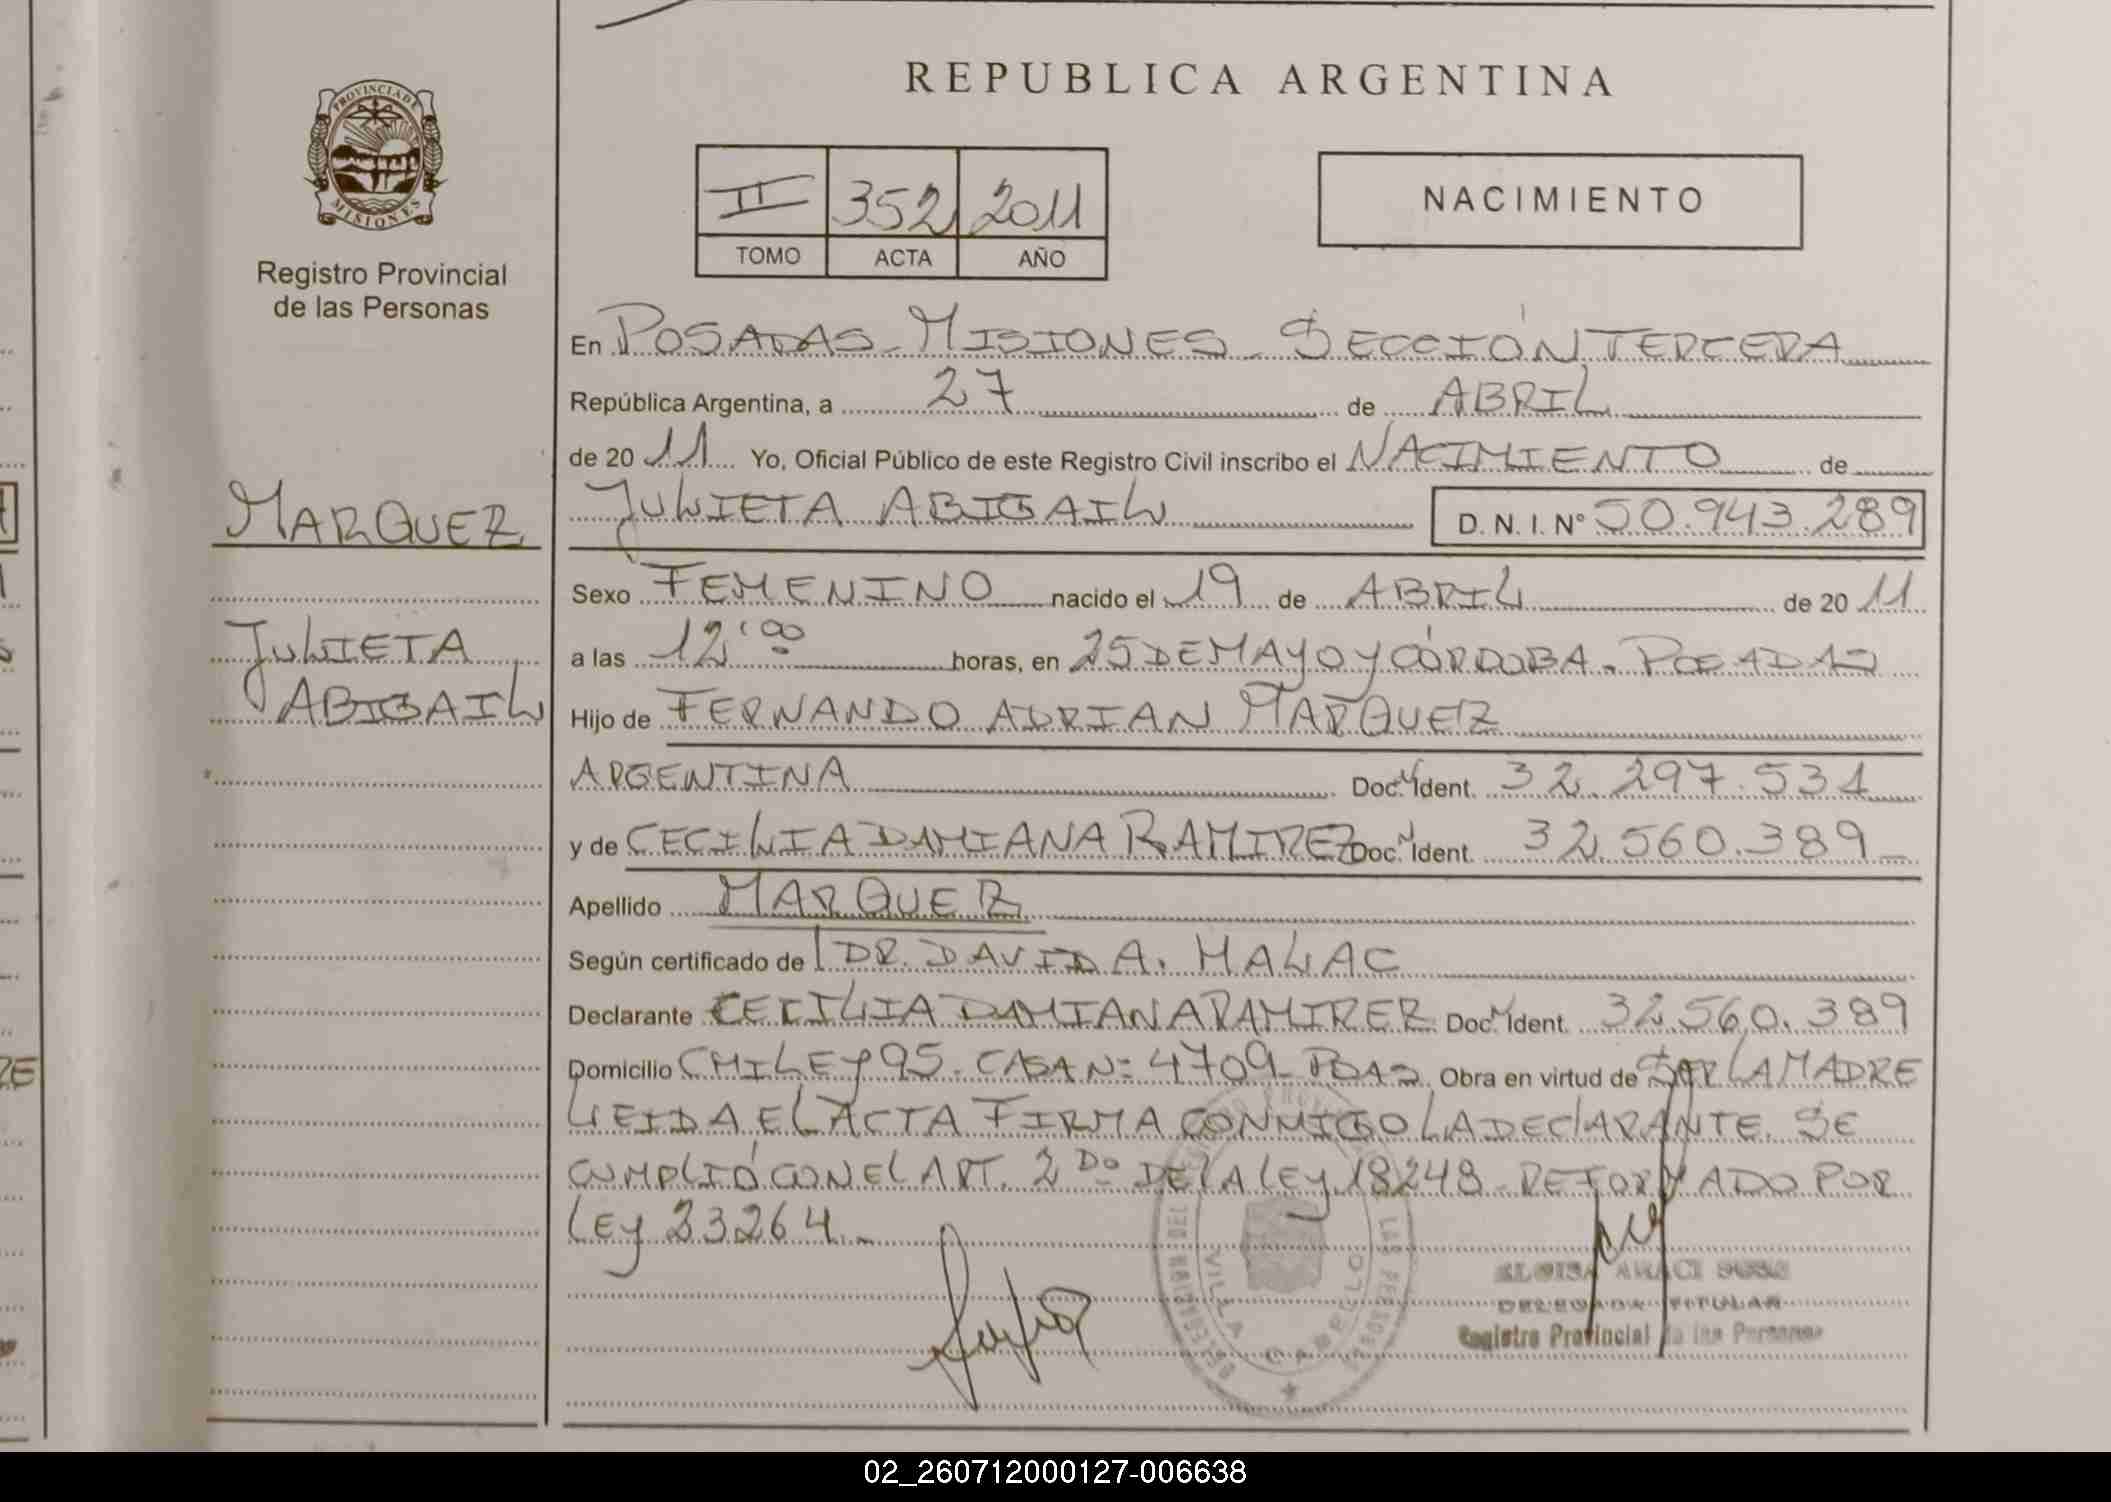 REPUBLICA ARGENTINA
PROVINCIA DE
MISIONES
Registro Provincial
de las Personas
II 352 2011
TOMO ACTA AÑO
NACIMIENTO
En POSADAS - MISIONES - SECCIÓN TERCERA
República Argentina, a 27 de ABRIL
de 20 11 Yo, Oficial Público de este Registro Civil inscribo el NACIMIENTO de
JULIETA ABIGAIL D. N. I. Nº 50.943.289
MARQUEZ
JULIETA
ABIGAIL
Sexo FEMENINO nacido el 19 de ABRIL de 20 11
a las 12:00 horas, en 25 DE MAYO Y CÓRDOBA. POSADAS
Hijo de FERNANDO ADRIAN MARQUEZ
ARGENTINA Doc. Ident. 32.297.531
y de CECILIA DAMIANA RAMIREZ Doc. Ident. 32.560.389
Apellido MARQUEZ
Según certificado de DR. DAVID A. MALAC
Declarante CECILIA DAMIANA RAMIREZ Doc. Ident. 32.560.389
Domicilio CHILE Y 95 - CASA N= 4709 - PDAS Obra en virtud de SER LA MADRE
LEIDA EL ACTA FIRMA CONMIGO LA DECLARANTE. SE
CUMPLIÓ CON EL ART. 2DO DE LA LEY 18248 - REFORMADO POR
LEY 23264.-
VILLA CABELLO
DELEGADA TITULAR
Registro Provincial de las Personas
02_260712000127-006638